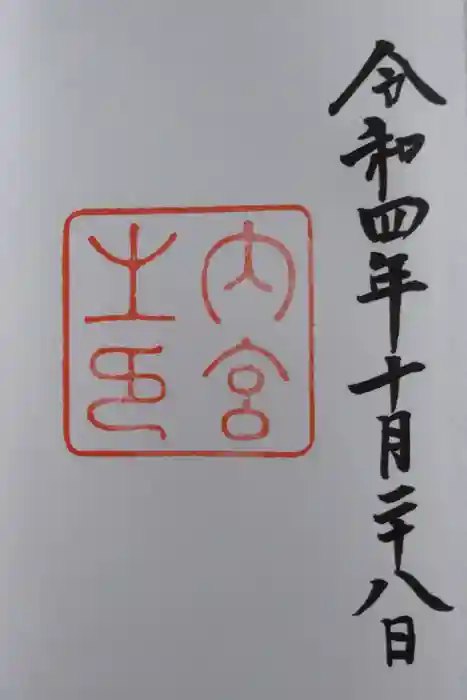 令和四年十月二十八日
内宮
之印